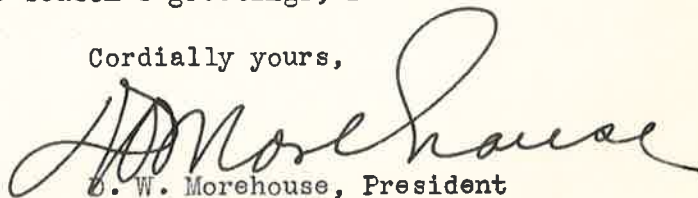 season's greetings,
Cordially yours,
DW Morehouse
D. W. Morehouse, President